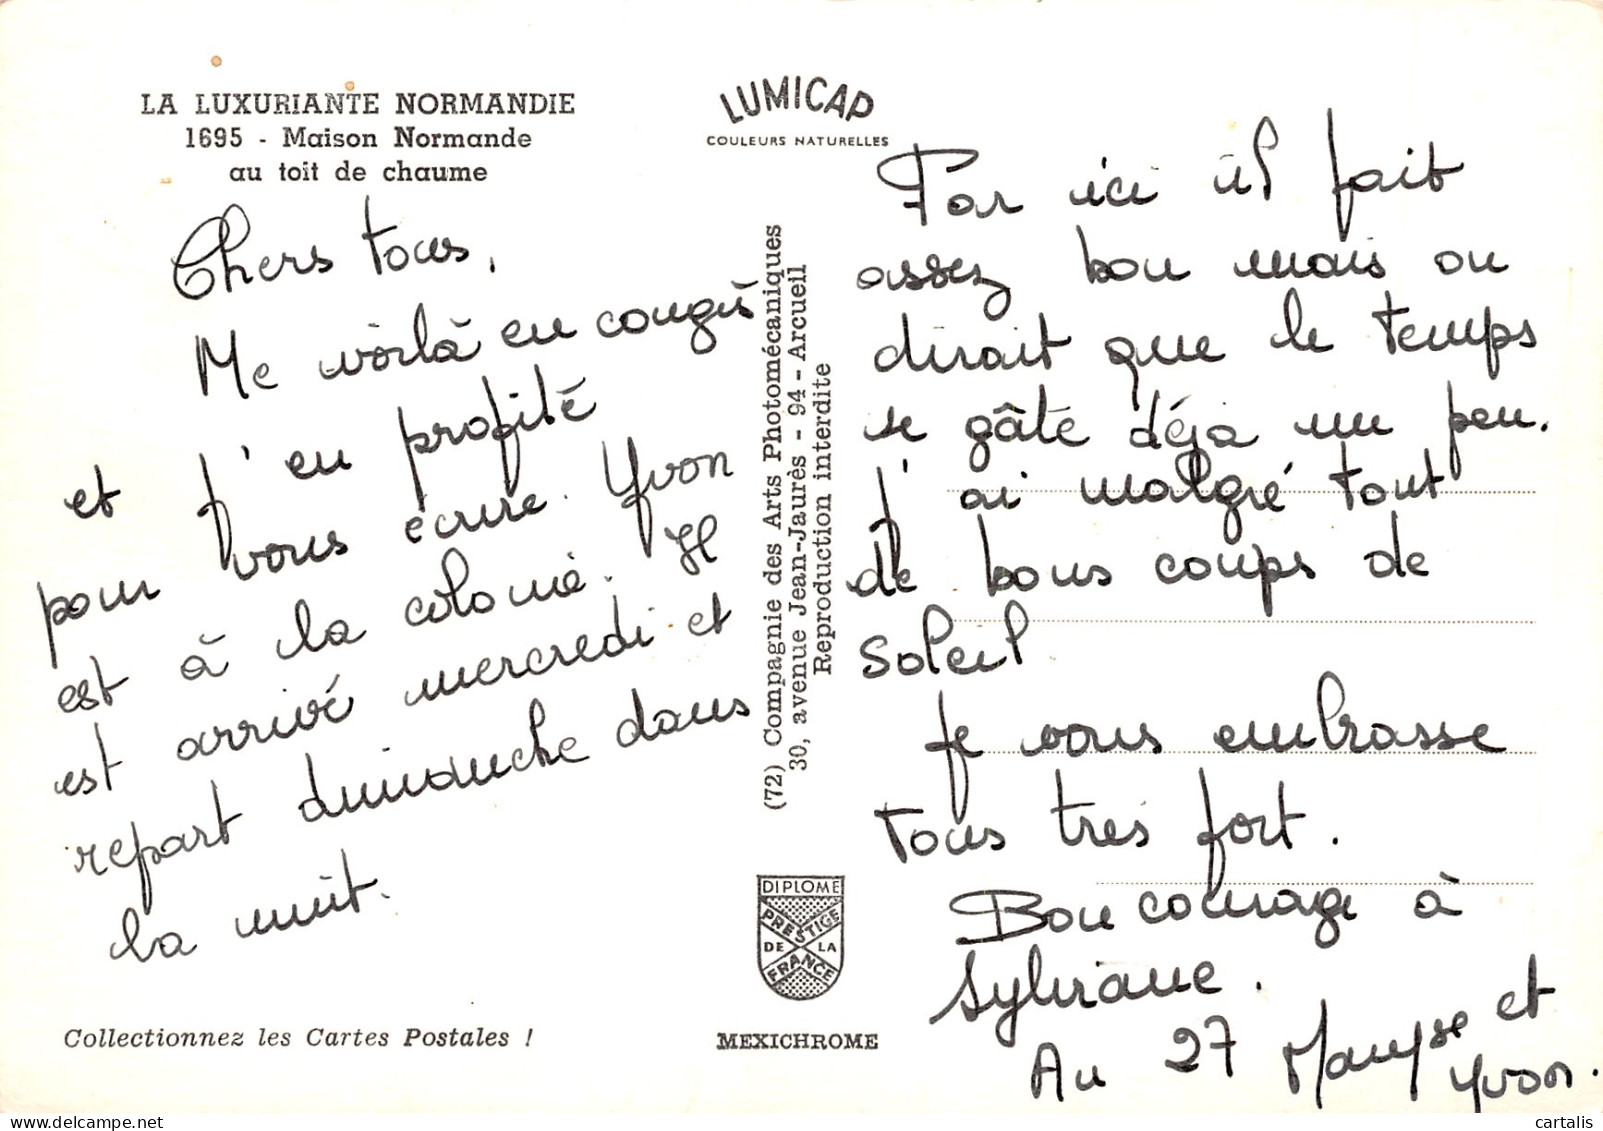 LA LUXURIANTE NORMANDIE
1695 - Maison Normande
au toit de chaume
Chers tous,
Me voilà en congés
et j'en profite
pour vous écrire. Yvon
est à la colonie. Il
est arrivé mercredi et
repart dimanche dans
la nuit.
Collectionnez les Cartes Postales !
LUMICAP
COULEURS NATURELLES
(72) Compagnie des Arts Photomécaniques
30, avenue Jean-Jaurès - 94 - Arcueil
Reproduction interdite
DIPLOME
PRESTIGE
DE LA
FRANCE
MEXICHROME
Par ici il fait
assez bon mais on
dirait que le temps
se gâte déjà un peu.
J'ai malgré tout
de bons coups de
soleil
Je vous embrasse
tous très fort.
Bon courage à
Sylviane.
Au 27 Maryse et
Yvon.
cartalis
www.delcampe.net